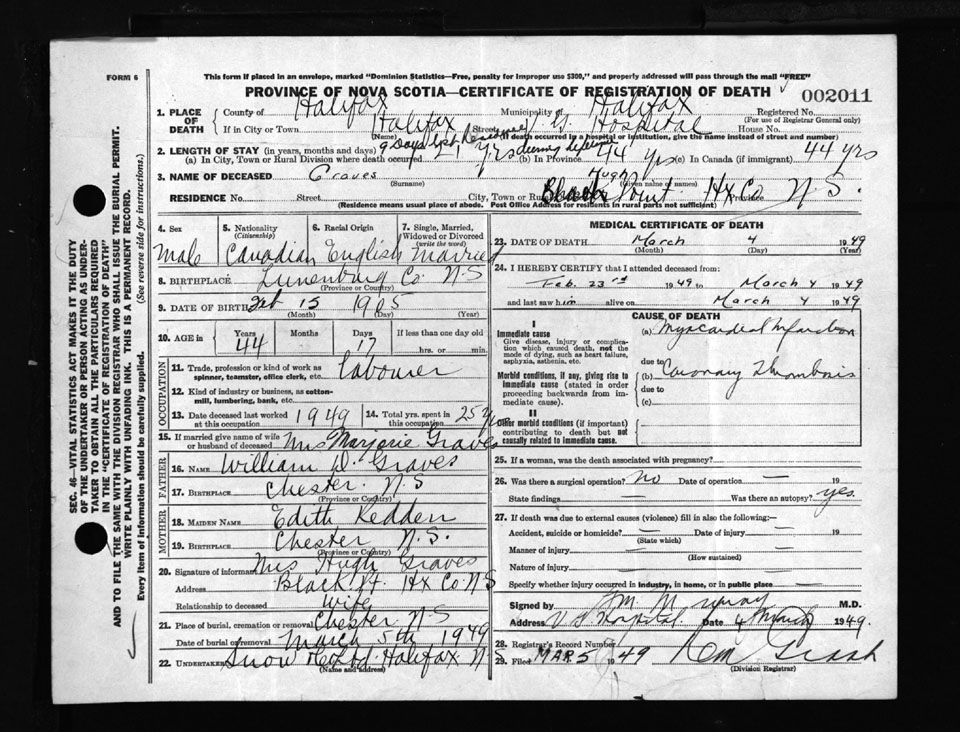 FORM 6
This form if placed in an envelope, marked "Dominion Statistics—Free, penalty for improper use $300," and properly addressed will pass through the mail "FREE"
PROVINCE OF NOVA SCOTIA—CERTIFICATE OF REGISTRATION OF DEATH
002011
1. PLACE OF DEATH
County of Halifax Municipality of Halifax Registered No.
(For use of Registrar General only)
If in City or Town Halifax Street Hospital House No.
(Name) (If death occurred in a hospital or institution, give the name instead of street and number)
2. LENGTH OF STAY (in years, months and days) 9 Days
(a) In City, Town or Rural Division where death occurred yrs (b) In Province 44 yrs (c) In Canada (if immigrant) 44 yrs
3. NAME OF DECEASED Graves Hugh
(Surname) (Given name or names)
RESIDENCE No. Street City, Town or Black Point Hx Co Province N.S.
(Residence means usual place of abode. Post Office Address for residents in rural parts not sufficient)
4. Sex
Male
5. Nationality
(Citizenship)
Canadian
6. Racial Origin
English
7. Single, Married, Widowed or Divorced
(write the word)
Married
8. BIRTHPLACE Lunenburg Co N.S
(Province or Country)
9. DATE OF BIRTH Feb 15 1905
(Month) (Day) (Year)
10. AGE in Years Months Days If less than one day old
44 17 hrs. or min.
OCCUPATION
11. Trade, profession or kind of work as spinner, teamster, office clerk, etc. Labourer
12. Kind of industry or business, as cotton-mill, lumbering, bank, etc.
13. Date deceased last worked at this occupation 1949
14. Total yrs. spent in this occupation 25 yrs
15. If married give name of wife or husband of deceased Mrs Marjorie Graves
FATHER
16. NAME William D. Graves
17. BIRTHPLACE Chester N.S
(Province or Country)
MOTHER
18. MAIDEN NAME Edith Redden
19. BIRTHPLACE Chester N.S.
(Province or Country)
20. Signature of informant Mrs Hugh Graves
Address Black Pt. Hx Co N.S
Relationship to deceased Wife
21. Place of burial, cremation or removal Chester N.S
Date of burial or removal March 5th 1949
22. UNDERTAKER Snow & Co Ltd Halifax N.S
(Name and address)
MEDICAL CERTIFICATE OF DEATH
23. DATE OF DEATH March 4 1949
(Month) (Day) (Year)
24. I HEREBY CERTIFY that I attended deceased from:
Feb. 23rd 1949 to March 4 1949
and last saw him alive on March 4 1949
CAUSE OF DEATH
I
Immediate cause
Give disease, injury or complication which caused death, not the mode of dying, such as heart failure, asphyxia, asthenia, etc.
(a) Myocardial Infarction
due to
Morbid conditions, if any, giving rise to immediate cause (stated in order proceeding backwards from immediate cause).
(b) Coronary Thrombosis
due to
(c)
II
Other morbid conditions (if important) contributing to death but not causally related to immediate cause.
25. If a woman, was the death associated with pregnancy?
26. Was there a surgical operation? No Date of operation — 19
State findings — Was there an autopsy? yes.
27. If death was due to external causes (violence) fill in also the following:—
Accident, suicide or homicide? — Date of injury — 19
(State which)
Manner of injury — —
(How sustained)
Nature of injury — —
Specify whether injury occurred in industry, in home, or in public place —
Signed by M.D.
Address V G Hospital Date 4 March 1949.
28. Registrar's Record Number
29. Filed MAR 5 1949
(Division Registrar)
SEC. 46—VITAL STATISTICS ACT MAKES IT THE DUTY
OF THE UNDERTAKER OR PERSON ACTING AS UNDER-
TAKER TO OBTAIN ALL THE PARTICULARS REQUIRED
IN THE "CERTIFICATE OF REGISTRATION OF DEATH"
AND TO FILE THE SAME WITH THE DIVISION REGISTRAR WHO SHALL ISSUE THE BURIAL PERMIT.
WRITE PLAINLY WITH UNFADING INK. THIS IS A PERMANENT RECORD.
Every item of information should be carefully supplied. (See reverse side for instructions.)